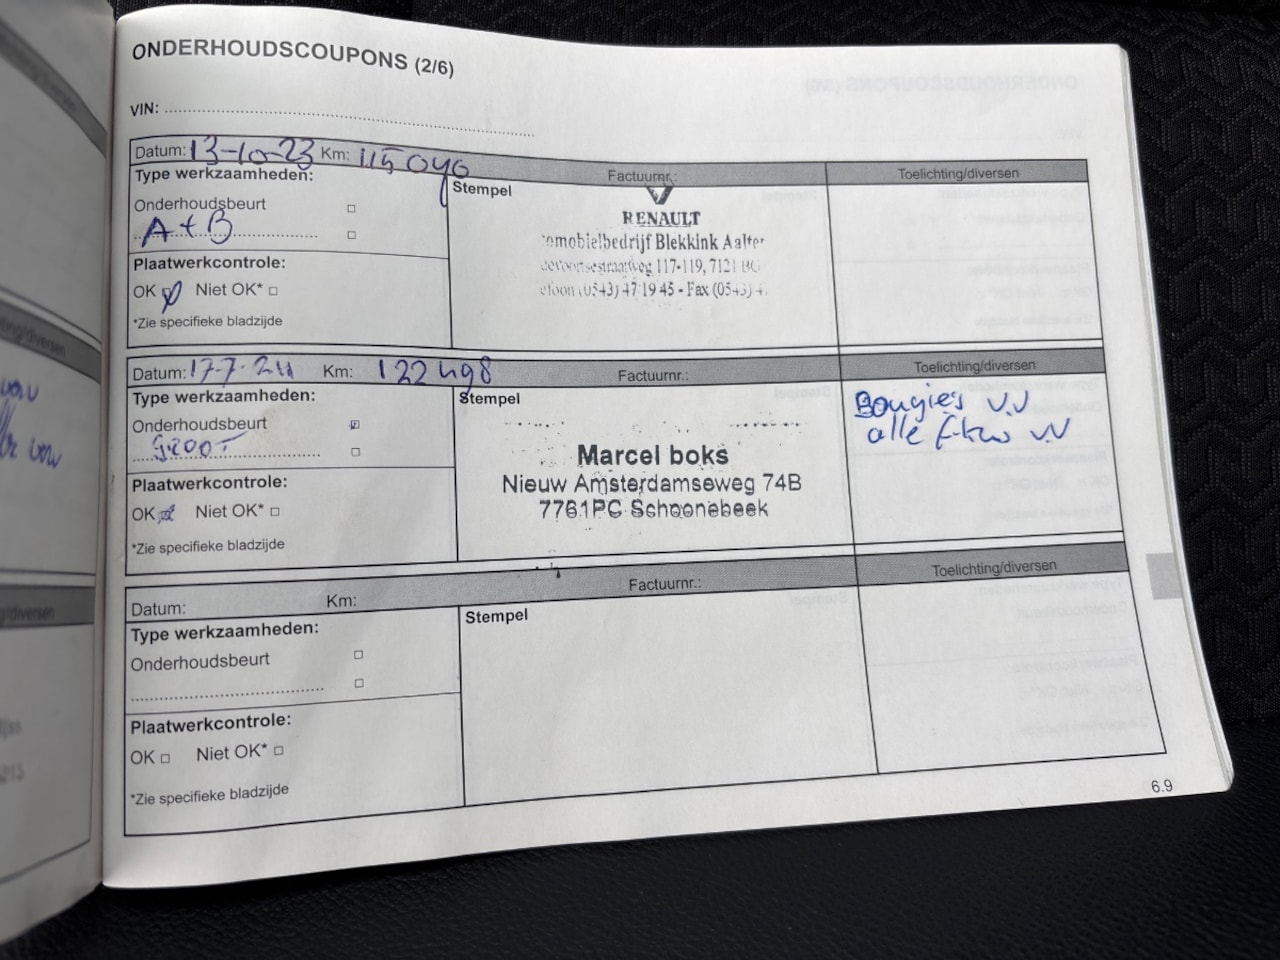 ONDERHOUDSCOUPONS (2/6)
VIN:
Datum: 13-10-23 Km: 115 040
Factuurnr.:
Toelichting/diversen
Type werkzaamheden:
Stempel
Onderhoudsbeurt
A + B
Plaatwerkcontrole:
OK Niet OK*
*Zie specifieke bladzijde
RENAULT
omobielbedrijf Blekkink Aalten
117-119, 7121
efoon (0543) 47 19 45 - Fax (0543) 4
Datum: 17-7-24 Km: 122 498
Factuurnr.:
Toelichting/diversen
Type werkzaamheden:
Stempel
Onderhoudsbeurt
groot
Plaatwerkcontrole:
OK Niet OK*
*Zie specifieke bladzijde
Marcel boks
Nieuw Amsterdamseweg 74B
7761PC Schoonebeek
Bougies V.V
alle V.V
Datum: Km:
Factuurnr.:
Toelichting/diversen
Type werkzaamheden:
Stempel
Onderhoudsbeurt
Plaatwerkcontrole:
OK Niet OK*
*Zie specifieke bladzijde
6.9